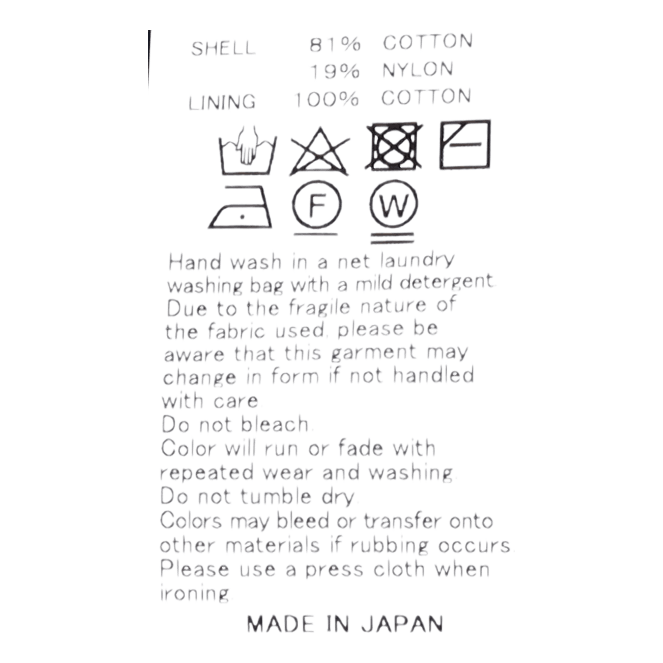 SHELL 81% COTTON
19% NYLON
LINING 100% COTTON
F W
Hand wash in a net laundry
washing bag with a mild detergent
Due to the fragile nature of
the fabric used, please be
aware that this garment may
change in form if not handled
with care
Do not bleach.
Color will run or fade with
repeated wear and washing
Do not tumble dry
Colors may bleed or transfer onto
other materials if rubbing occurs
Please use a press cloth when
ironing
MADE IN JAPAN